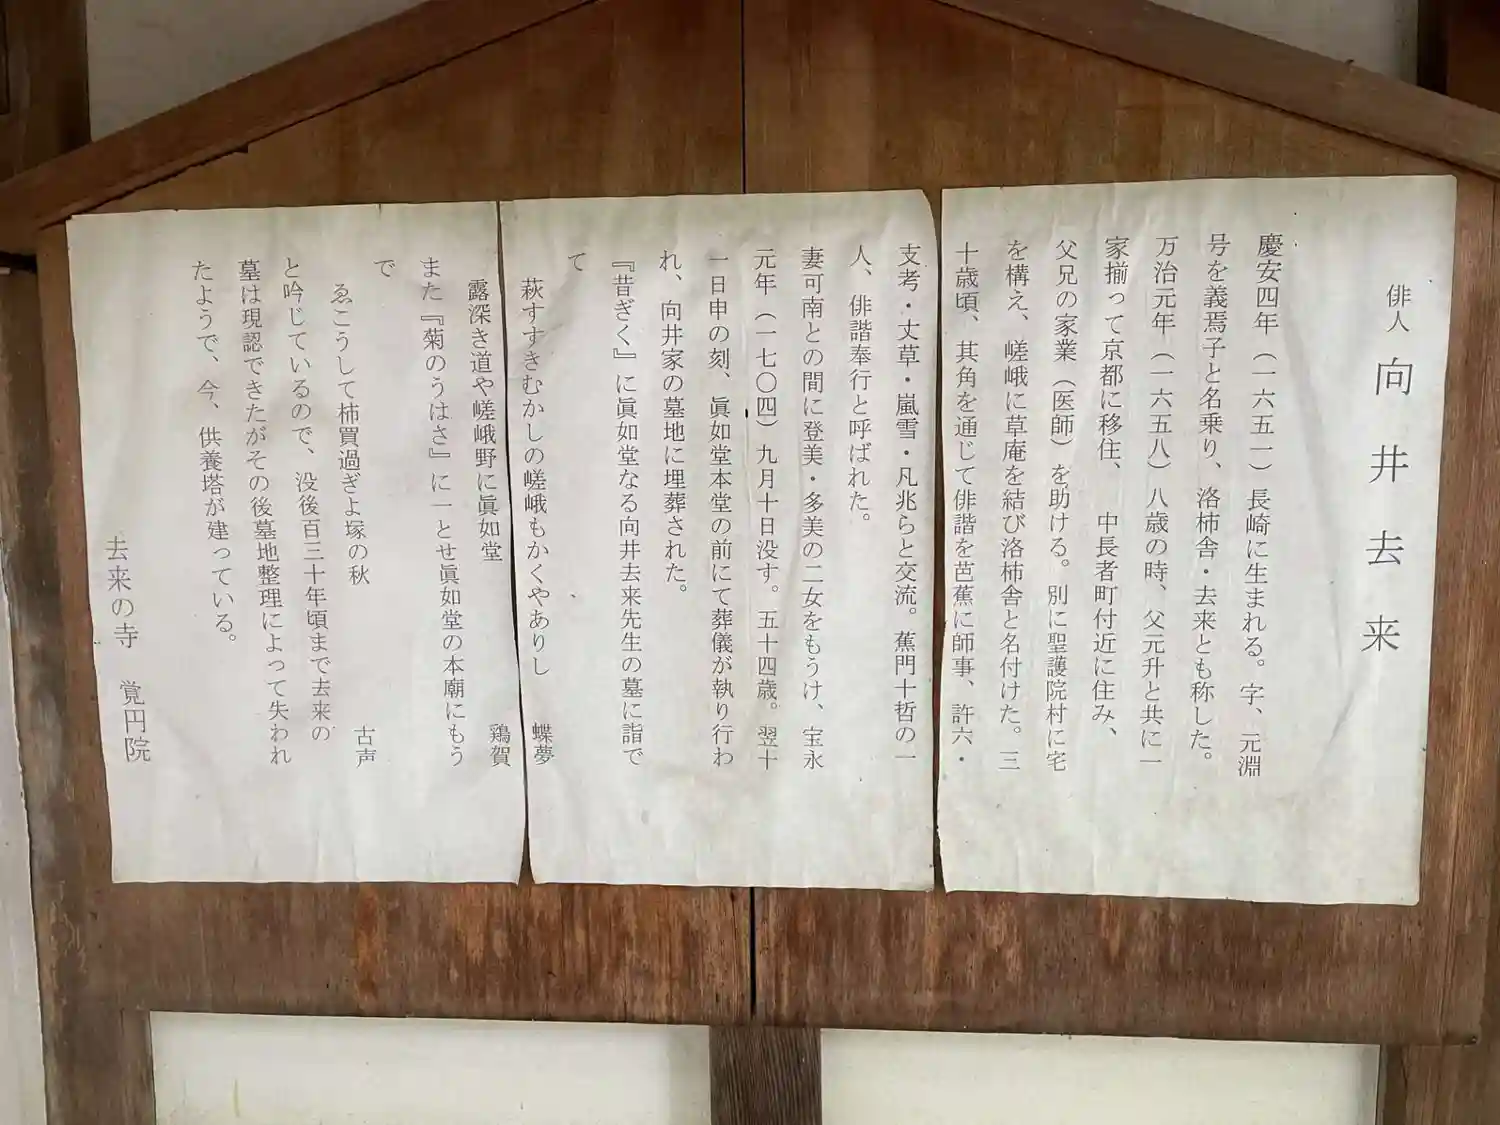 俳人 向井去来
慶安四年（一六五一）長崎に生まれる。字、元淵
号を義焉子と名乗り、洛柿舎・去来とも称した。
万治元年（一六五八）八歳の時、父元升と共に一
家揃って京都に移住、 中長者町付近に住み、
父兄の家業（医師）を助ける。別に聖護院村に宅
を構え、嵯峨に草庵を結び洛柿舎と名付けた。三
十歳頃、其角を通じて俳諧を芭蕉に師事、許六・
支考・丈草・嵐雪・凡兆らと交流。蕉門十哲の一
人、俳諧奉行と呼ばれた。
妻可南との間に登美・多美の二女をもうけ、宝永
元年（一七〇四）九月十日没す。五十四歳。翌十
一日申の刻、眞如堂本堂の前にて葬儀が執り行わ
れ、向井家の墓地に埋葬された。
『昔ぎく』に眞如堂なる向井去来先生の墓に詣で
て
萩すすきむかしの嵯峨もかくやありし 蝶夢
露深き道や嵯峨野に眞如堂 鶏賀
また『菊のうはさ』に一とせ眞如堂の本廟にもう
で
ゑこうして柿買過ぎよ塚の秋 古声
と吟じているので、没後百三十年頃まで去来の
墓は現認できたがその後墓地整理によって失われ
たようで、今、供養塔が建っている。
去来の寺 覚円院